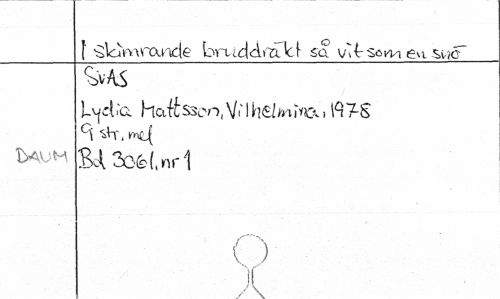 I skimrande bruddräkt så vit som en snö
SvAS
Lydia Mattsson, Vilhelmina, 1978
9 str, mel
DAUM Bd 3061, nr 1